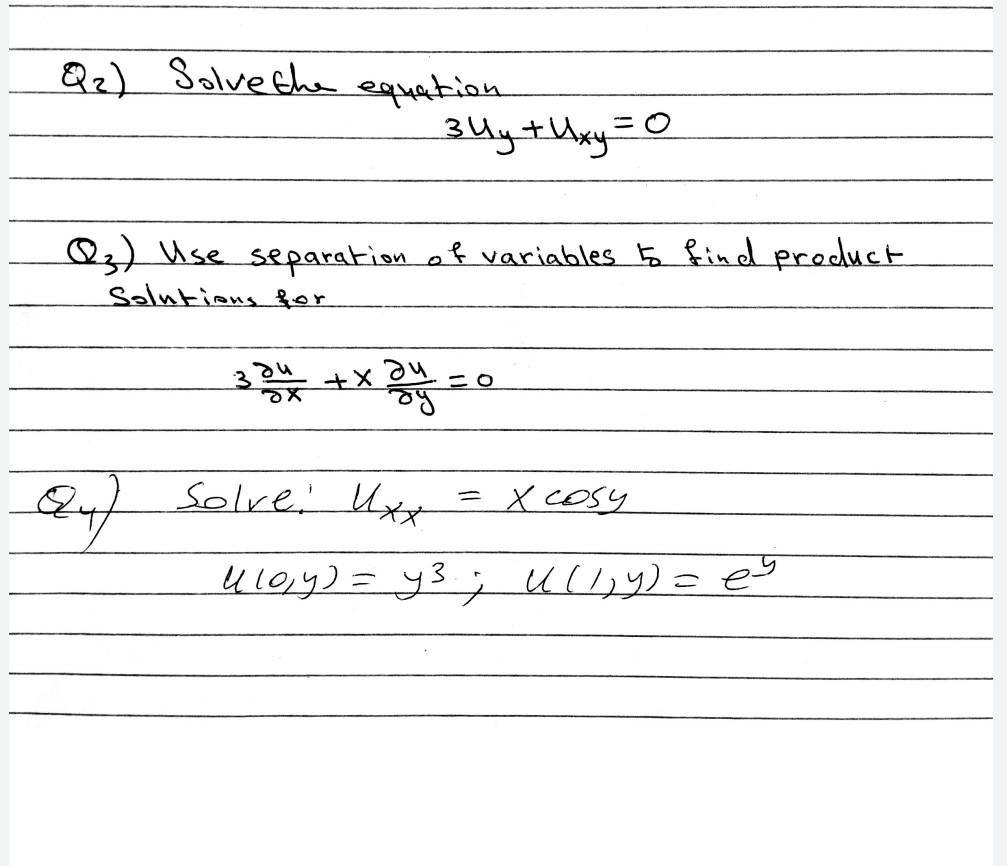 Q2) Solve the equation
3uy + uxy = 0
Q3) Use separation of variables to find product
Solutions for
3 ∂u/∂x + x ∂u/∂y = 0
Q4) Solve: uxx = x cosy
u(0,y) = y³ ; u(1,y) = e^y